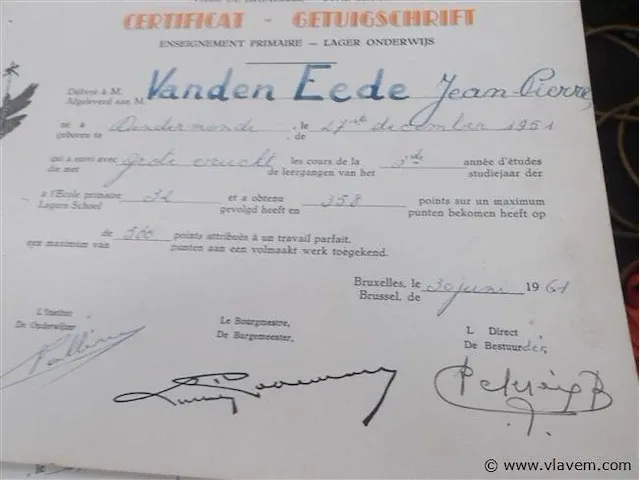 CERTIFICAT - GETUIGSCHRIFT
ENSEIGNEMENT PRIMAIRE — LAGER ONDERWIJS
Délivré à M. Vanden Eede Jean-Pierre,
Afgeleverd aan M.
né à Dendermonde, le 27ste december 1951
geboren te de
qui a suivi avec grote vrucht les cours de la année d'études
die met de leergangen van het studiejaar der
à l'Ecole primaire 32 et a obtenu 358 points sur un maximum
Lagere School gevolgd heeft en punten bekomen heeft op
de 500 points attribués à un travail parfait.
een maximum van punten aan een volmaakt werk toegekend.
Bruxelles, le 30 juni 1961
Brussel, de
L'Institut
De Onderwijzer
Le Bourgmestre,
De Burgemeester,
L Direct
De Bestuurder,
© www.vlavem.com